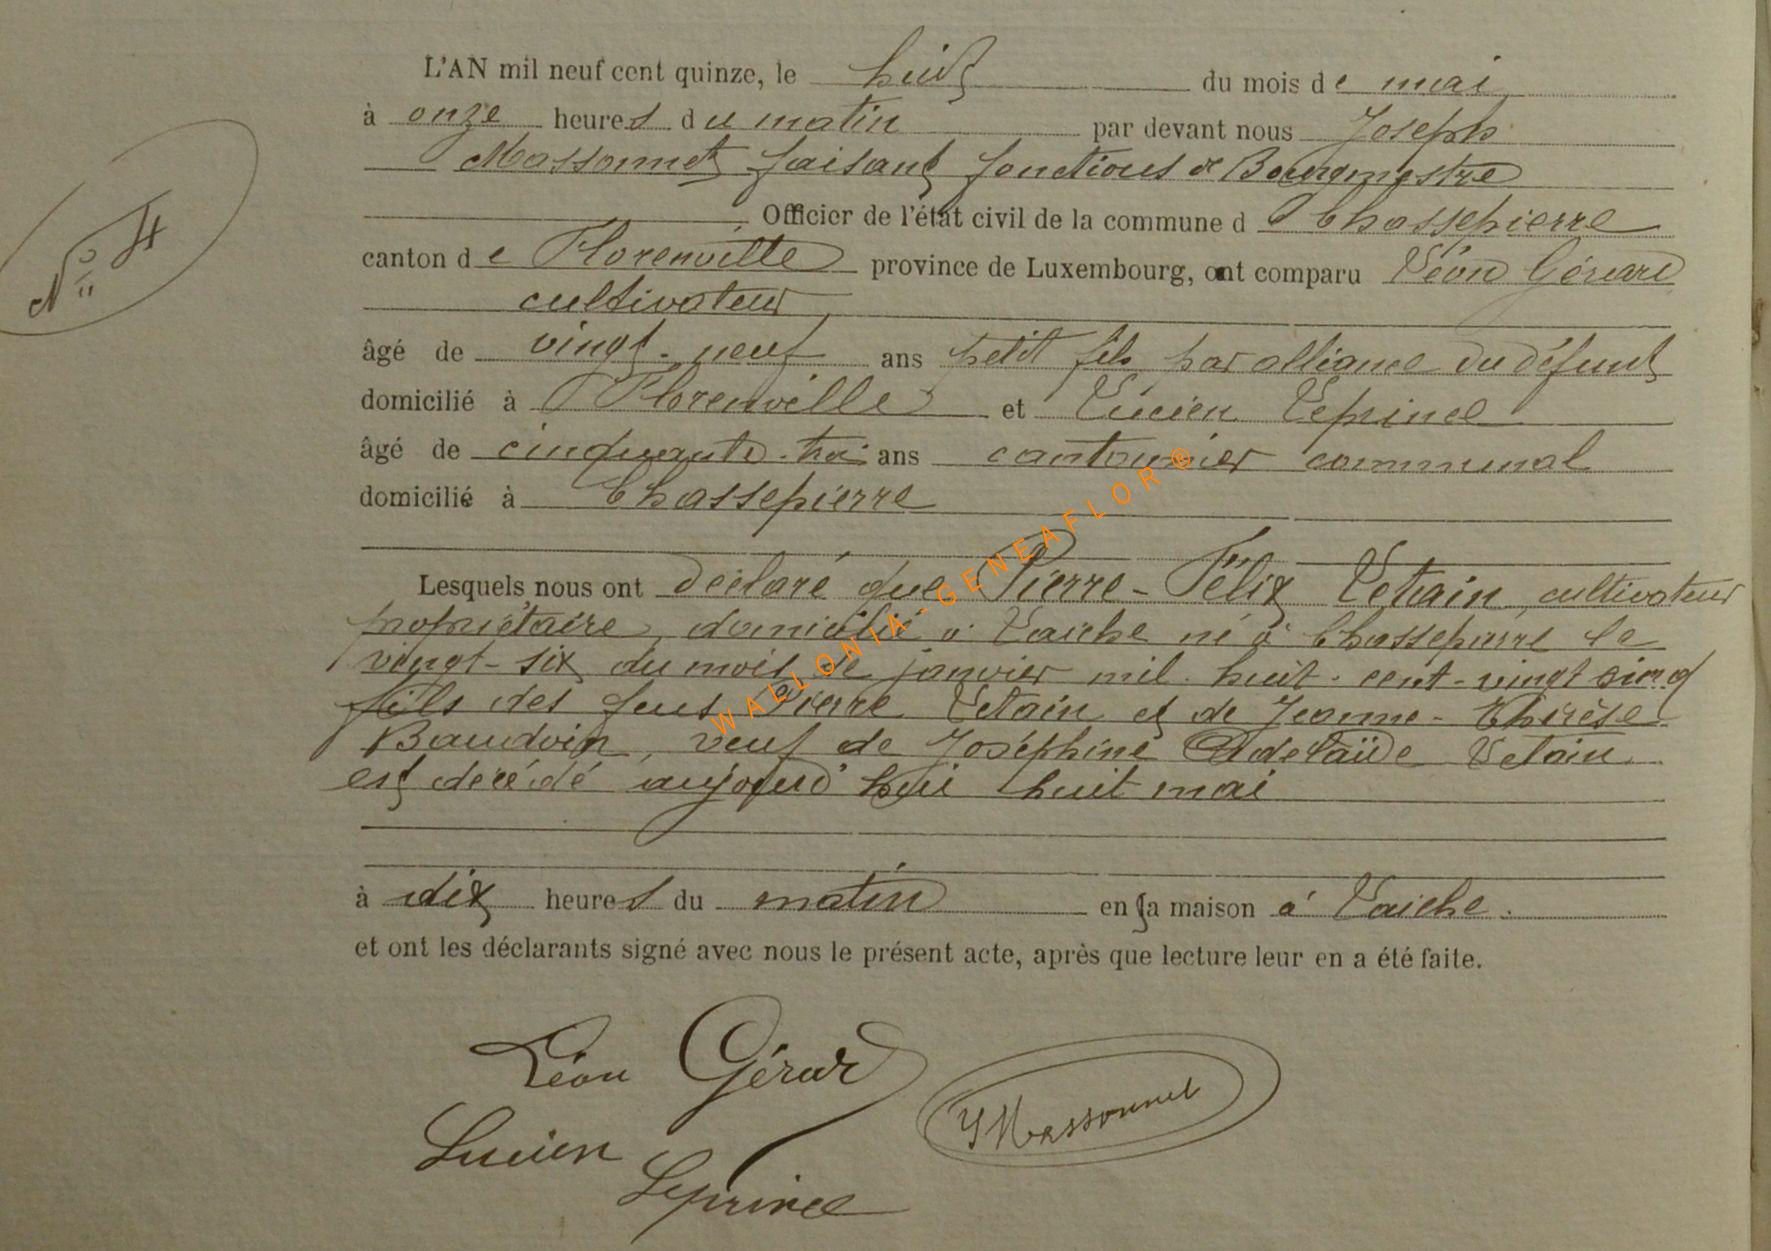 L'AN mil neuf cent quinze, le huit du mois de mai
à onze heures du matin par devant nous Joseph
Massonnet faisant fonctions de Bourgmestre
Officier de l'état civil de la commune d Chassepierre
canton de Florenville province de Luxembourg, ont comparu Léon Gérard
cultivateur
âgé de vingt-neuf ans petit fils par alliance du défunt
domicilié à Florenville et Lucien Leprince
âgé de cinquante-trois ans cantonnier communal
domicilié à Chassepierre
Lesquels nous ont déclaré que Pierre-Félix Letain, cultivateur
propriétaire, domicilié à Laiche né à Chassepierre le
vingt-six du mois de janvier mil-huit-cent-vingt cinq
fils des feus Pierre Letain et de Jeanne-Thérèse
Baudoin, veuf de Joséphine Adelaïde Letain
est décédé aujourd'hui huit mai
à dix heures du matin en sa maison à Laiche.
et ont les déclarants signé avec nous le présent acte, après que lecture leur en a été faite.
N° 4
Léon Gérard
JMassonnet
Lucien
Leprince
WALLONIA-GENEAFLOR®